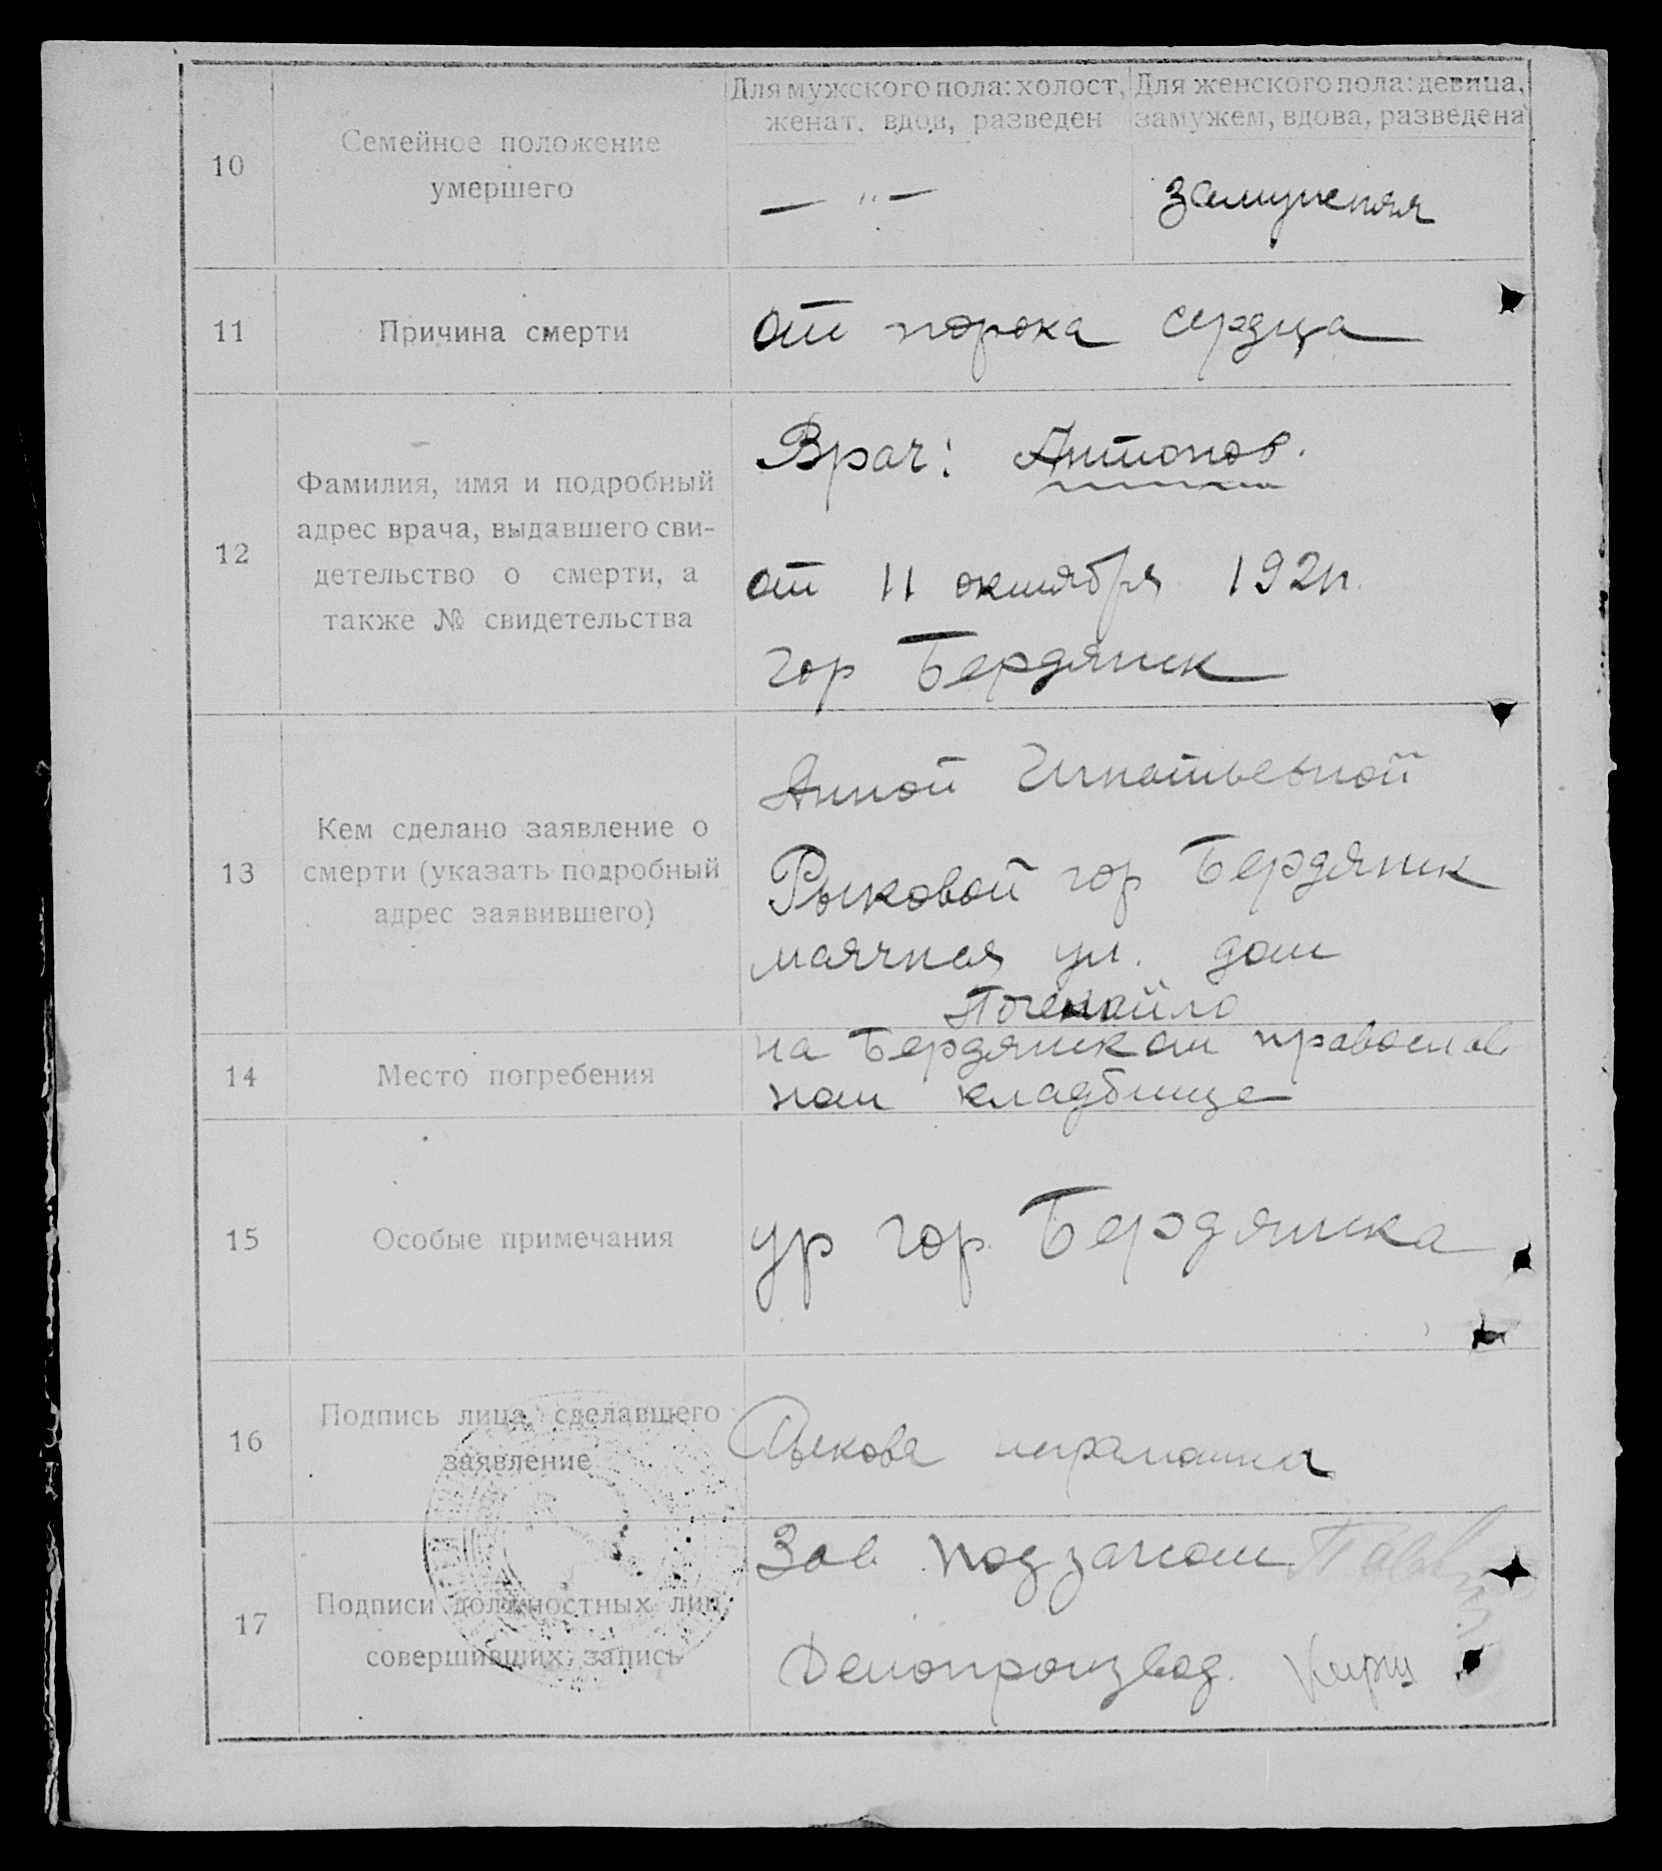 10
Семейное положение
умершего
Для мужского пола: холост,
женат, вдов, разведен
— " —
Для женского пола: девица,
замужем, вдова, разведена
замужняя
11
Причина смерти
от порока сердца
12
Фамилия, имя и подробный
адрес врача, выдавшего сви-
детельство о смерти, а
также № свидетельства
Врач: Антонов.
от 11 октября
гор Бердянск
13
Кем сделано заявление о
смерти (указать подробный
адрес заявившего)
Анной Игнатьевной
Рыковой гор Бердянск
маячная ул. дом
14
Место погребения
на Бердянском православ
ном кладбище
15
Особые примечания
ур гор. Бердянска
16
Подпись лица, сделавшего
заявление
Рыкова
17
Подписи должностных лиц,
совершивших запись
Зав. подзагсом
Делопроизвод.